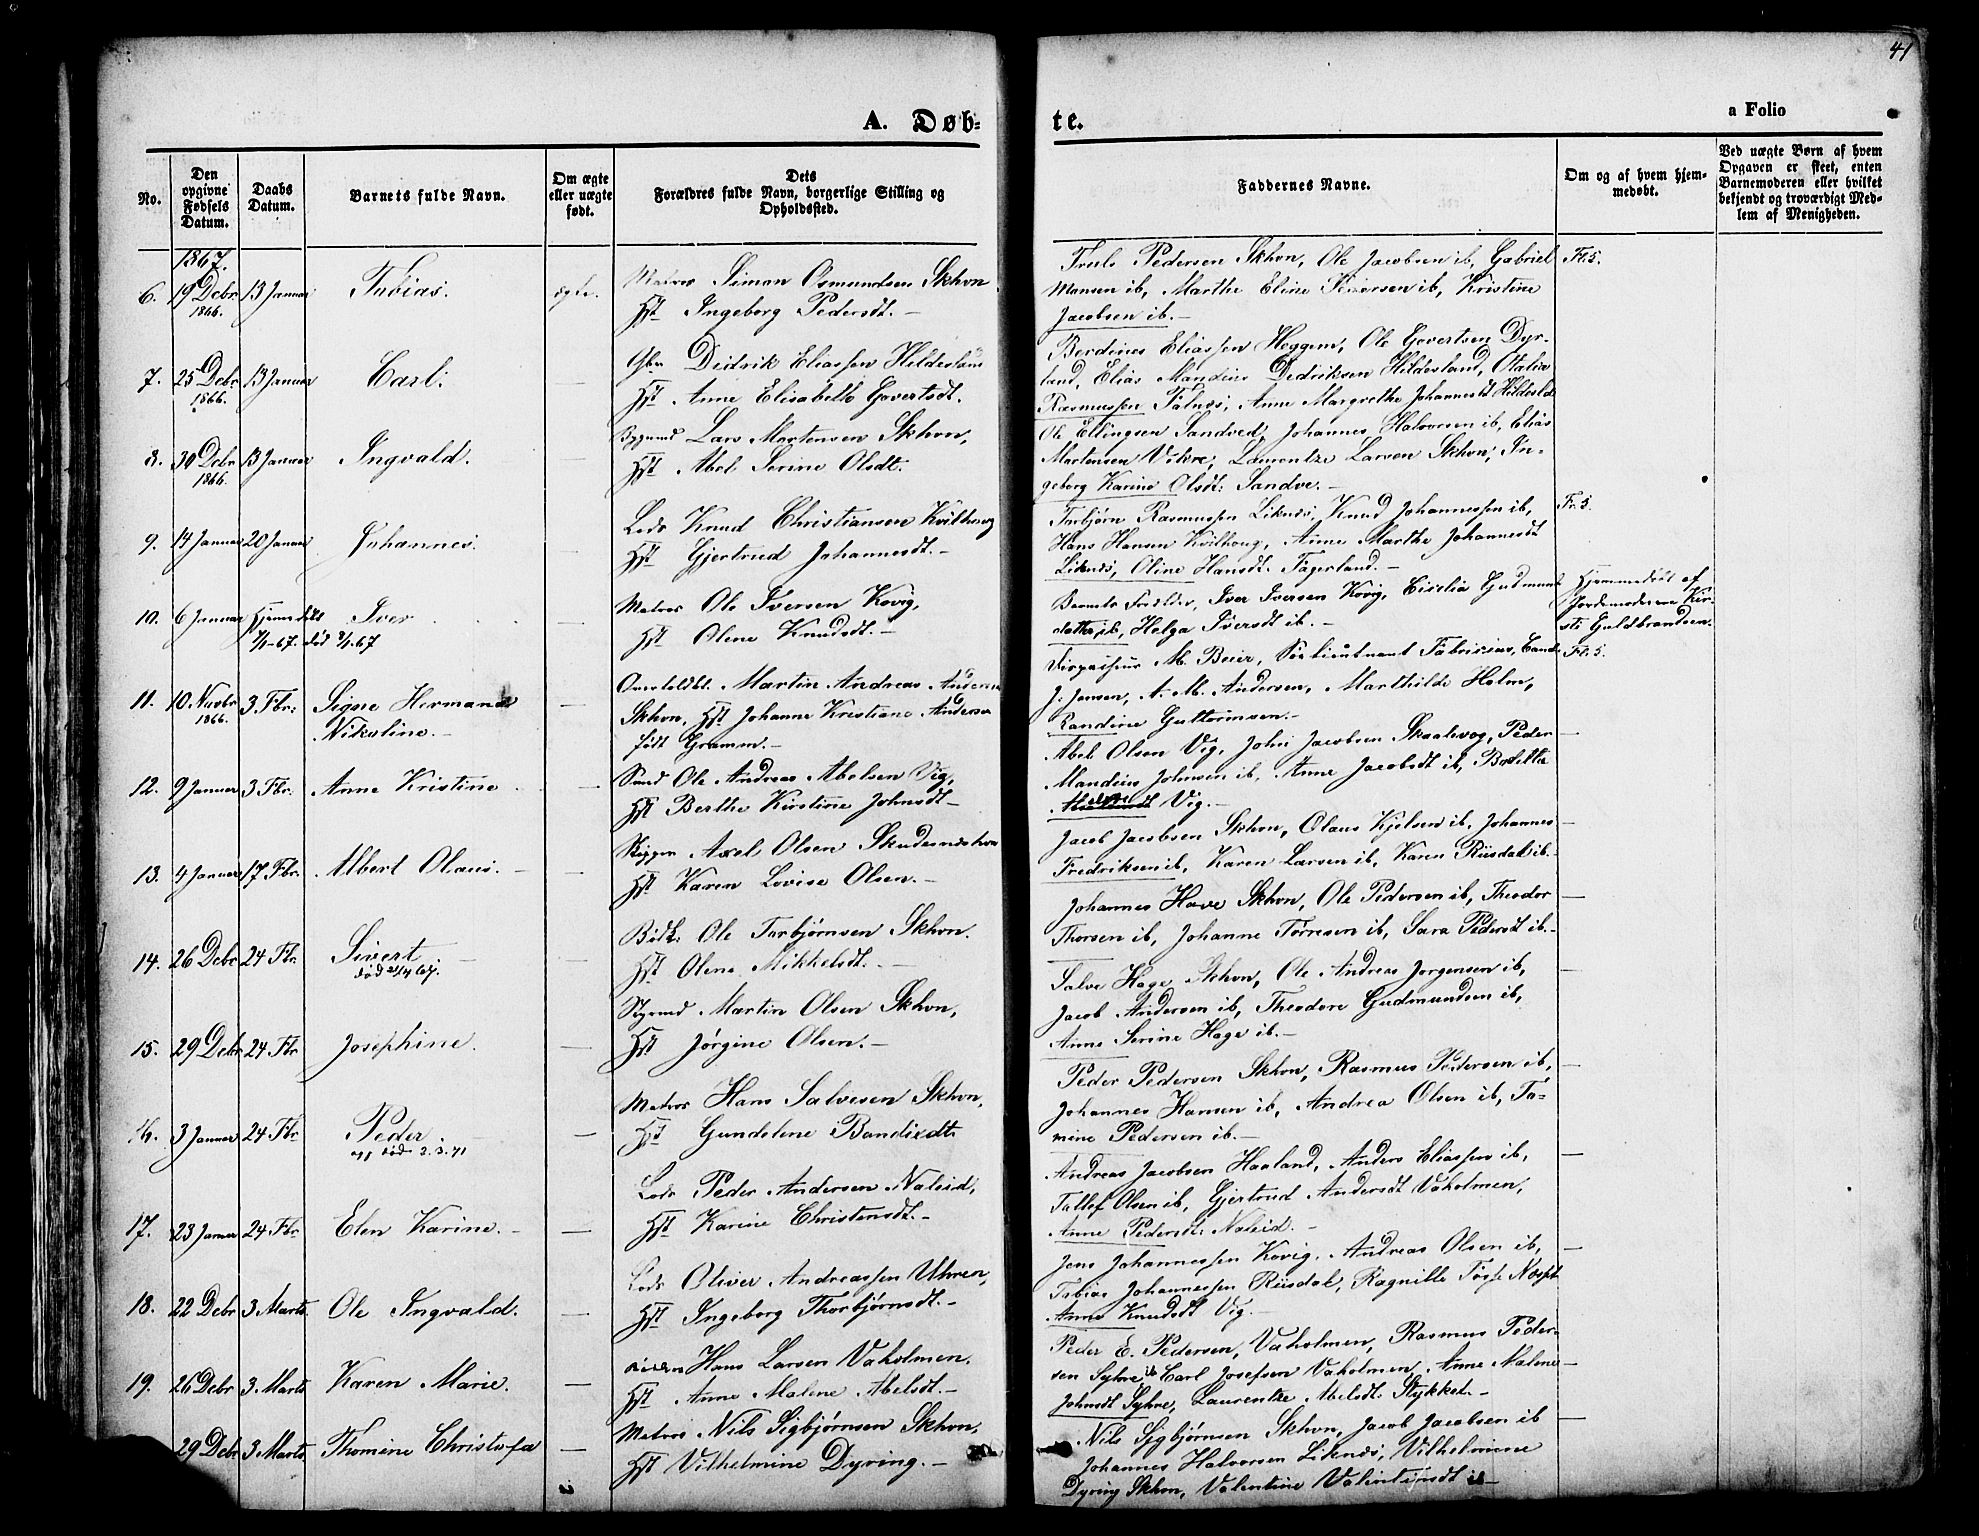 41
A. Døb-
te.
a Folio
No.
Den opgivne Fødsels Datum.
Daabs Datum.
Barnets fulde Navn.
Om ægte eller uægte født.
Dets Forældres fulde Navn, borgerlige Stilling og Opholdssted.
Faddernes Navne.
Om og af hvem hjemmedøbt.
Ved uægte Børn af hvem Opgaven er skeet, enten Barnemoderen eller hvilket bekjendt og troværdigt Medlem af Menigheden.
1867.
6. 19 Debr 1866. 13 Januar Tobias. ægte.
Matros Simon Osmundsen Skhvn
Hst Ingeborg Pedersdt.-
Truls Pedersen Skhvn, Ole Jacobsen ib, Gabriel
Monsen ib, Marthe Eline Pedersen ib, Kristine
Jacobsen ib.-
7. 25 Debr 1866. 13 Januar Carl. —
Gbr Didrik Eliassen Hildesland
Hst Anne Elisabeth Govertsdt.
Berdines Eliassen Heggem, Ole Govertsen Dyr-
land, Elias Mandius Dedriksen Hildesland, Otalia
Rasmussen Falnes, Anne Margrethe Johannesdt Hildesld
8. 30 Debr 1866. 13 Januar Ingvald. —
Bygmd Lars Mortensen Skhvn,
Hst Abel Serine Olsdt.
Ole Ellingsen Sandved, Johannes Halvorsen ib, Elias
Martensen Vikre, Laurentze Larsen Skhvn, In-
geborg Karine Olsdt. Sandve.-
9. 14 Januar 20 Januar Johannes. —
Lods Knud Christiansen Kvilhoug
Hst Gjertrud Johannesdt.-
Torbjørn Rasmussen Liknes, Knud Johannessen ib,
Hans Hansen Kvilhoug, Anne Marthe Johannesdt
Liknes, Oline Hansdt. Fagerland.-
10. 6 Januar Hjemmedøbt 7/1-67. død 9/1.67 Iver —
Matros Ole Iversen Kovig,
Hst Olene Knudsdt.-
Barnets Forældre, Iver Iversen Kovig, Cicilia Gudmunds
datter ib, Helga Iversdt ib.-
Hjemmedøbt af
Jordemoderen Kir-
sti Guldbrandsen.
11. 10 Novbr 1866. 3 Fbr. Signe Hermande
Nikoline.- —
Martin Andreas Andersen
Skhvn, Hst Johanne Kristiane Andersen
født Gramm.-
M. Beier, Fabricius, Cand.
J. Jensen, A. M. Andersen, Marthilde Holm,
Randine Guttormsen.-
12. 9 Januar 3 Fbr. Anne Kristine —
Ole Andreas Abelsen Vig,
Hst Berthe Kirstine Johnsdt-
Abel Olsen Vig, John Jacobsen Skaalevog, Peder
Mandius Johnsen ib, Anne Jacobsdt ib, Bolette
Vig.-
13. 4 Januar 17 Fbr. Albert Olaus. —
Skipper Axel Olsen Skudesneshvn
Hst Karen Lovise Olsen.-
Jacob Jacobsen Skhvn, Olaus Kjelsen ib, Johannes
Fredriksen ib, Karen Larsen ib, Karen Riisdal ib.-
14. 26 Debr 24 Fbr. Sivert —
Bødk. Ole Torbjørnsen Skhvn.
Hst Olene Mikkelsdt.-
Johannes Hove Skhvn, Ole Pedersen ib, Theodor
Thorsen ib, Johanne Torresen ib, Sara Pedersdt ib.-
15. 29 Debr 24 Fbr Josephine. —
Styrmd Martin Olsen Skhvn,
Hst Jørgine Olsen.-
Salve Hage Skhvn, Ole Andreas Jorgensen ib,
Jacob Andersen ib, Theodore Gudmundsen ib,
Anne Serine Hage ib.-
16. 3 Januar 24 Fbr Peder
død 2.3.71 —
Matros Hans Salvesen Skhvn,
Hst Gundelene Bandixdt
Peder Pedersen Skhvn, Rasmus Pedersen ib,
Johannes Hansen ib, Andrea Olsen ib, To-
mine Pedersen ib.-
17. 23 Januar 24 Fbr. Elen Karine.- —
Lods Peder Andersen Naleid,
Hst Karine Christensdt.-
Andreas Jacobsen Haaland, Anders Eliassen ib,
Tallef Olsen ib, Gjertrud Andersdt Vaholmen,
Anne Pedersdt. Naleid.-
18. 22 Debr 3 Marts Ole Ingvald. —
Lods Oliver Andreassen Uhren,
Hst Ingeborg Thorbjørnsdt.-
Jens Johannessen Kovig, Andreas Olsen ib,
Tobias Johannessen Riisdal, Ragnille
Anne Knudsdt Vig.-
19. 26 Debr 3 Marts Karen Marie. —
Hans Larsen Vaholmen.
Hst Anne Malene Abelsdt.-
Peder E. Pedersen, Vaholmen, Rasmus Peder-
sen Syhre, Carl Josefsen Vaholmen, Anne Malene
Johnsdt Syhre, Laurentze Abelsdt. Stykket.-
29 Debr 3 Marts Thomine Christofa —
Matros Nils Sigbjørnsen Skhvn,
Hst Vilhelmine Dyring.-
Nils Sigbjørnsen Skhvn, Jacob Jacobsen ib
Johannes Halvorsen Liknes, Vilhelmine
Dyring Skhvn, Valentine Valentinsdt ib-